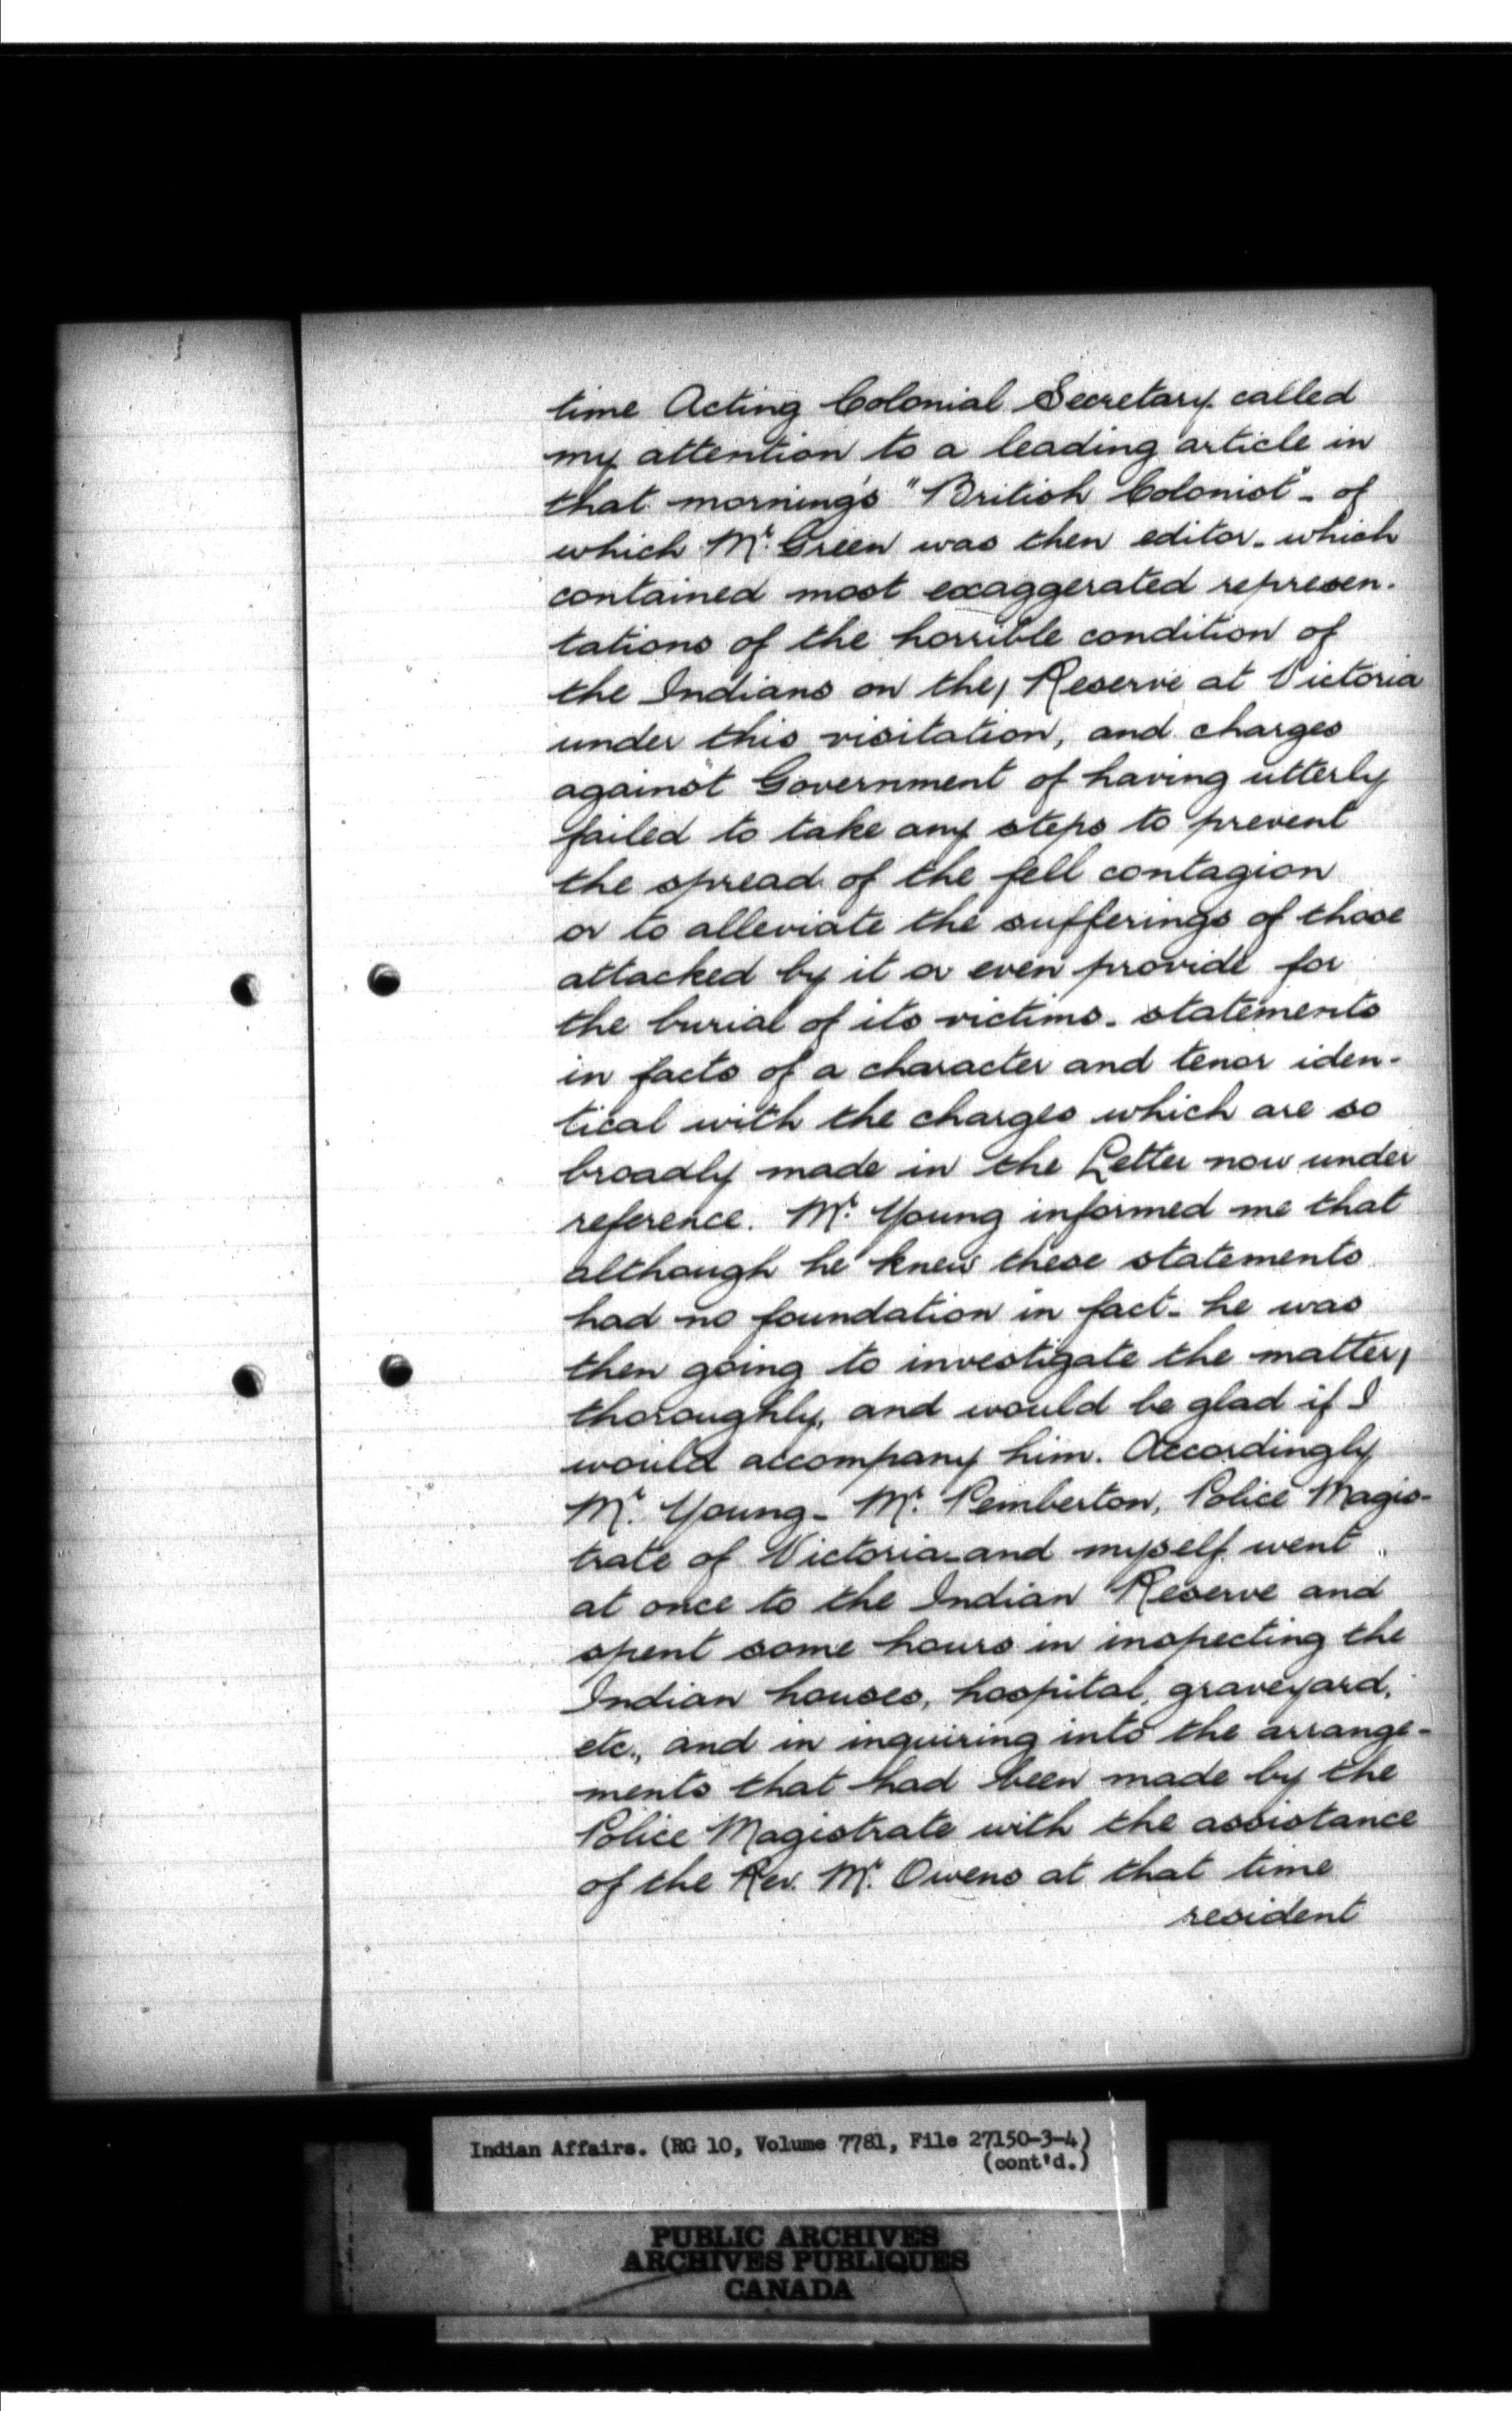 time Acting Colonial Secretary called
my attention to a leading article in
that morning's "British Colonist" - of
which Mr. Green was then editor - which
contained most exaggerated represen-
tations of the horrible condition of
the Indians on the, Reserve at Victoria
under this visitation, and charges
against Government of having utterly
failed to take any steps to prevent
the spread of the fell contagion
or to alleviate the sufferings of those
attacked by it or even provide for
the burial of its victims - statements
in facts of a character and tenor iden-
tical with the charges which are so
broadly made in the Letter now under
reference. Mr. Young informed me that
although he knew these statements
had no foundation in fact - he was
then going to investigate the matter,
thoroughly, and would be glad if I
would accompany him. Accordingly
Mr. Young - Mr. Pemberton, Police Magis-
trate of Victoria - and myself went
at once to the Indian Reserve and
spent some hours in inspecting the
Indian houses, hospital, graveyard,
etc., and in inquiring into the arrange-
ments that had been made by the
Police Magistrate with the assistance
of the Rev. Mr. Owens at that time
resident
Indian Affairs. (RG 10, Volume 7781, File 27150-3-4)
(cont'd.)
PUBLIC ARCHIVES
ARCHIVES PUBLIQUES
CANADA